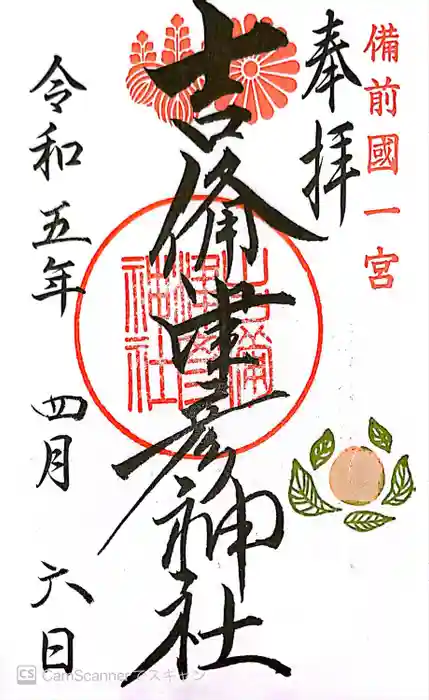 備前國一宮
奉拝
吉備津彦神社
令和五年 四月 六日
吉備津彦神社
CS CamScannerでスキャン